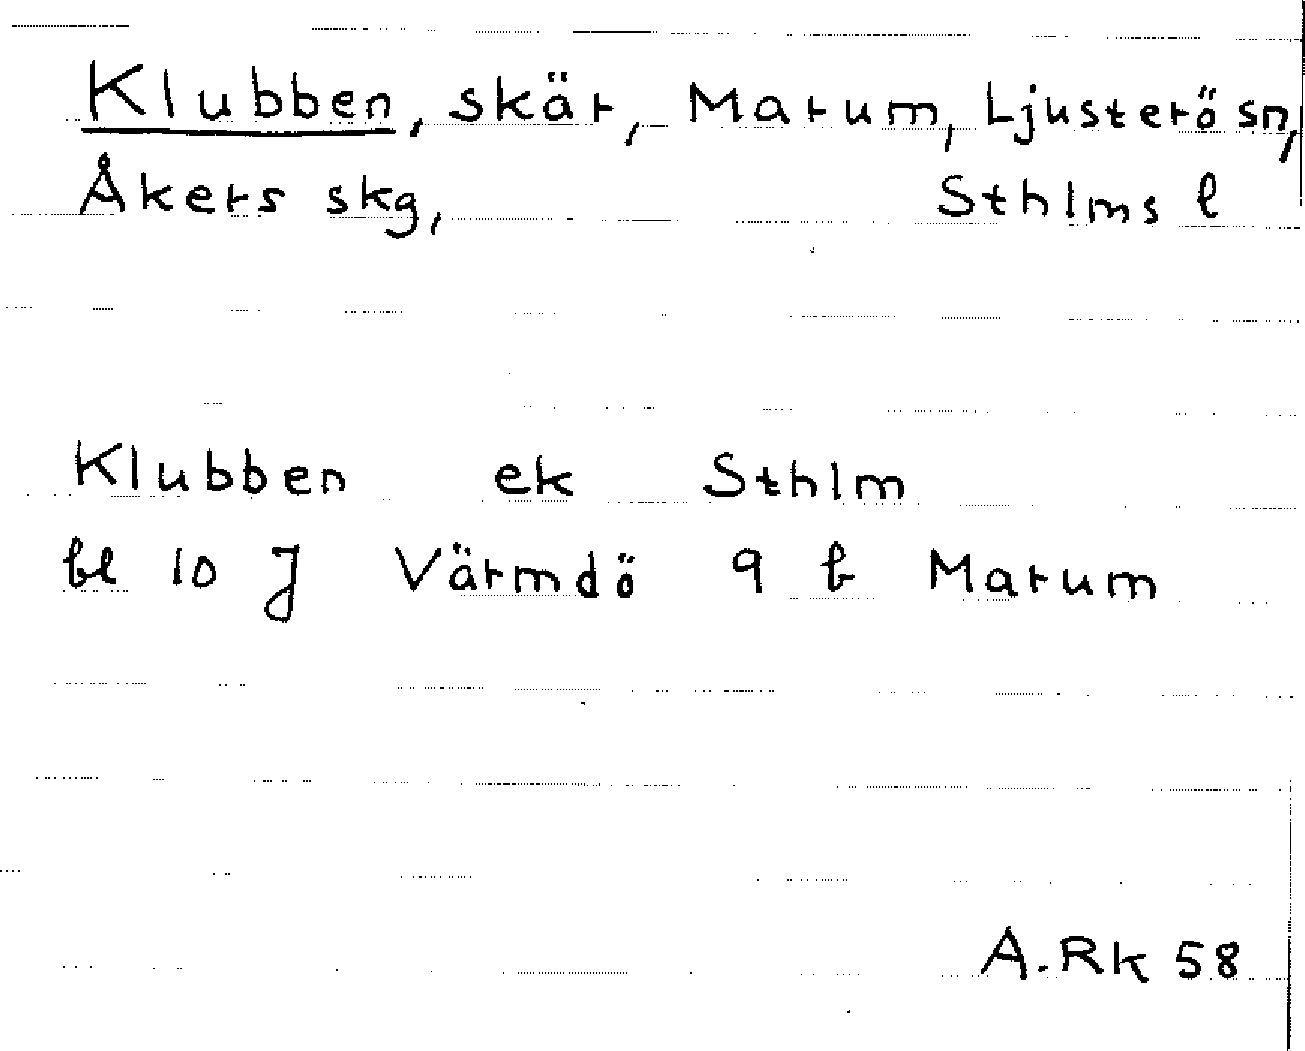 Klubben, skär, Marum, Ljusterö sn,
Åkers skg, Sthlms l
Klubben ek Sthlm
bl 10 J Värmdö 9 b Marum
A. Rk 58